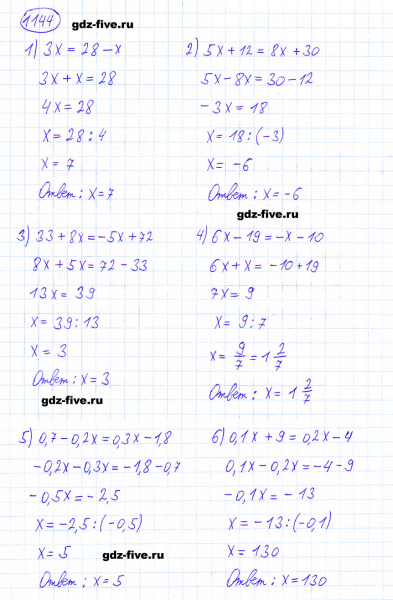 1144
gdz-five.ru
1) 3x = 28 - x
3x + x = 28
4x = 28
x = 28 : 4
x = 7
Ответ: x = 7
2) 5x + 12 = 8x + 30
5x - 8x = 30 - 12
-3x = 18
x = 18 : (-3)
x = -6
Ответ: x = -6
gdz-five.ru
3) 33 + 8x = -5x + 72
8x + 5x = 72 - 33
13x = 39
x = 39 : 13
x = 3
Ответ: x = 3
gdz-five.ru
4) 6x - 19 = -x - 10
6x + x = -10 + 19
7x = 9
x = 9 : 7
x = 9/7 = 1 2/7
Ответ: x = 1 2/7
5) 0,7 - 0,2x = 0,3x - 1,8
-0,2x - 0,3x = -1,8 - 0,7
-0,5x = -2,5
x = -2,5 : (-0,5)
x = 5
gdz-five.ru
Ответ: x = 5
6) 0,1x + 9 = 0,2x - 4
0,1x - 0,2x = -4 - 9
-0,1x = -13
x = -13 : (-0,1)
x = 130
Ответ: x = 130